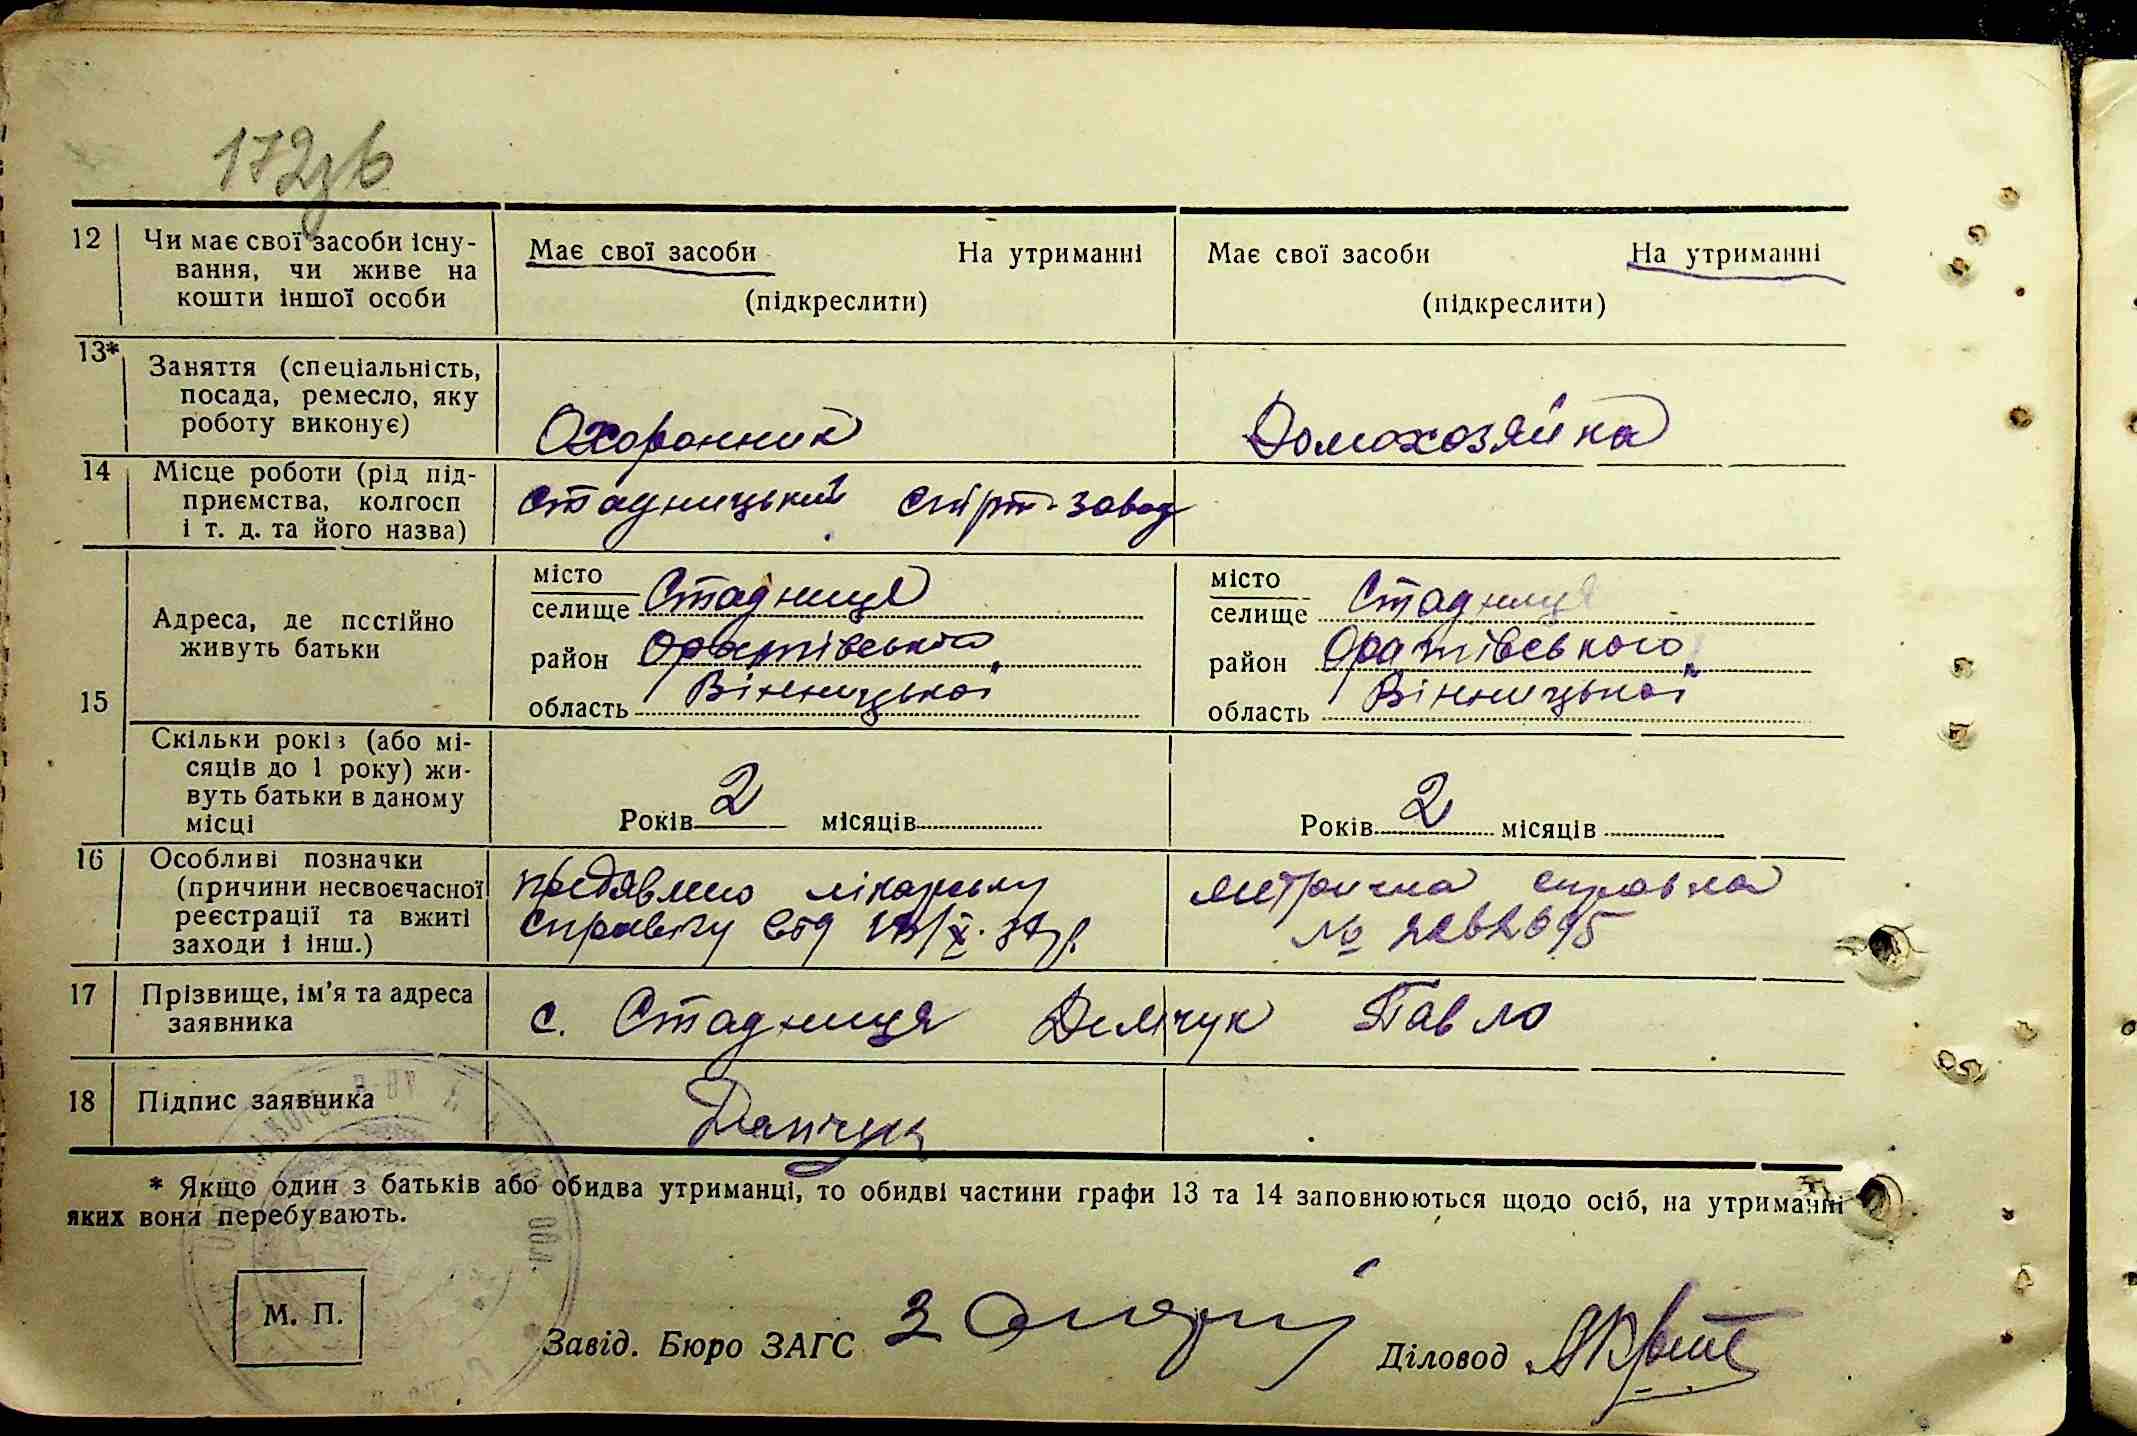 172зв
12 Чи має свої засоби існу-
вання, чи живе на
кошти іншої особи
Має свої засоби На утриманні
(підкреслити)
Має свої засоби На утриманні
(підкреслити)
13* Заняття (спеціальність,
посада, ремесло, яку
роботу виконує)
Охоронник
Домохозяйка
14 Місце роботи (рід під-
приємства, колгосп
і т. д. та його назва)
Стадницький спірт-завод
15 Адреса, де постійно
живуть батьки
місто
селище Стадниця
район Оратівського
область Вінницької
місто
селище Стадниця
район Оратівського
область Вінницької
Скільки років (або мі-
сяців до 1 року) жи-
вуть батьки в даному
місці
Років 2 місяців
Років 2 місяців
16 Особливі позначки
(причини несвоєчасної
реєстрації та вжиті
заходи і інш.)
предявлено лікарську
справку від
метрична справка
№
17 Прізвище, ім'я та адреса
заявника
с. Стадниця Демчук Павло
18 Підпис заявника
* Якщо один з батьків або обидва утриманці, то обидві частини графи 13 та 14 заповнюються щодо осіб, на утриманні
яких вони перебувають.
М. П.
Завід. Бюро ЗАГС
Діловод